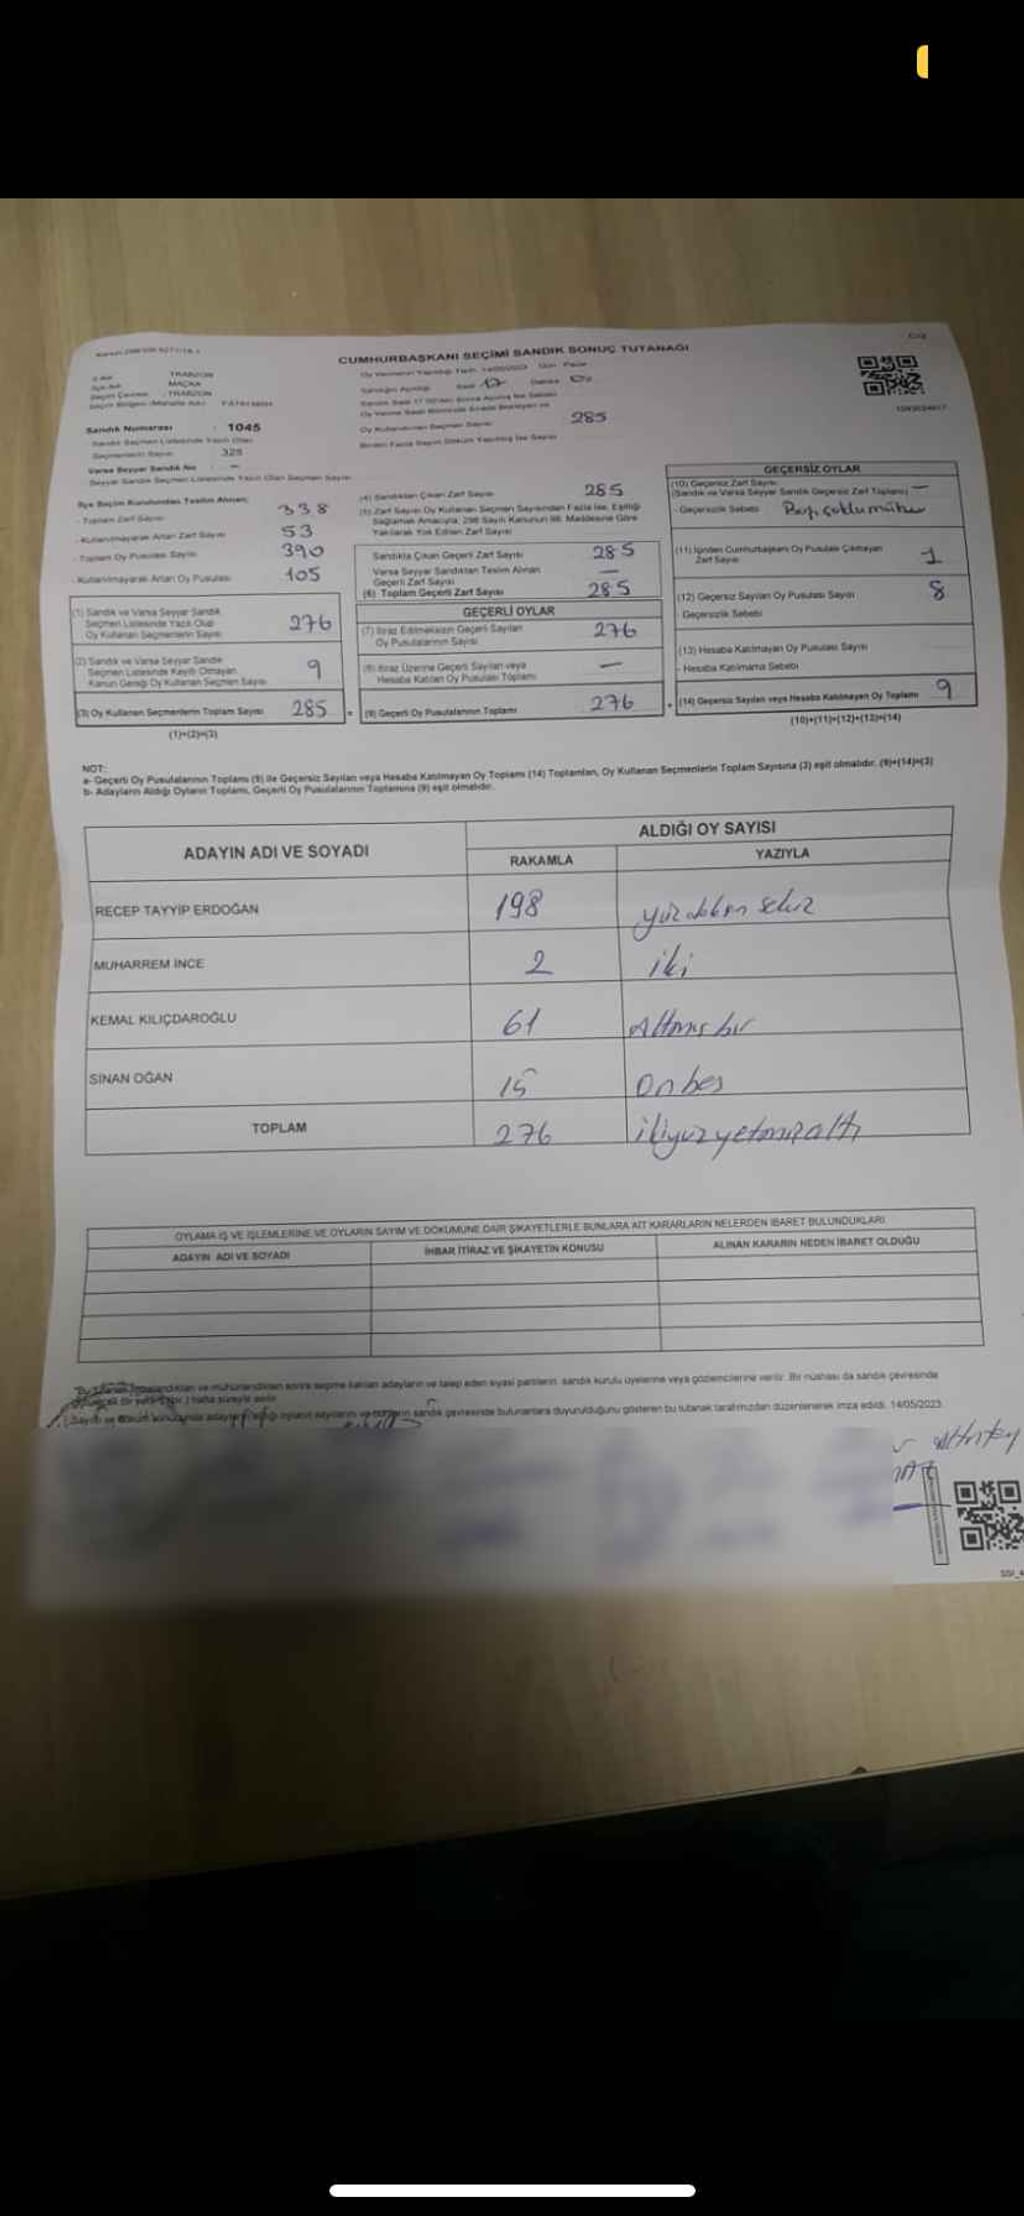 CUMHURBAŞKANI SEÇİMİ SANDIK SONUÇ TUTANAĞI
TRABZON
MAÇKA
TRABZON
Sandık Numarası : 1045
Sandık Seçmen Listesinde Yazılı Olan
Seçmenlerin Sayısı 325
Varsa Seyyar Sandık No —
Seyyar Sandık Seçmen Listesinde Yazılı Olan Seçmen Sayısı
İlçe Seçim Kurulundan Teslim Alınan;
- Toplam Zarf Sayısı 338
- Kullanılmayarak Artan Zarf Sayısı 53
- Toplam Oy Pusulası Sayısı 390
- Kullanılmayarak Artan Oy Pusulası 105
(1) Sandık ve Varsa Seyyar Sandık
Seçmen Listesinde Yazılı Olup
Oy Kullanan Seçmenlerin Sayısı 276
(2) Sandık ve Varsa Seyyar Sandık
Seçmen Listesinde Kayıtlı Olmayan
Kanun Gereği Oy Kullanan Seçmen Sayısı 9
(3) Oy Kullanan Seçmenlerin Toplam Sayısı 285 =
(1)+(2)=(3)
Oy Kullanan Seçmen Sayısı 285
(4) Sandıktan Çıkan Zarf Sayısı 285
(5) Zarf Sayısı Oy Kullanan Seçmen Sayısından Fazla İse, Eşitliği
Sağlamak Amacıyla, 298 Sayılı Kanunun 98. Maddesine Göre
Yakılarak Yok Edilen Zarf Sayısı
Sandıkta Çıkan Geçerli Zarf Sayısı 285
Varsa Seyyar Sandıktan Teslim Alınan
Geçerli Zarf Sayısı —
(6) Toplam Geçerli Zarf Sayısı 285
GEÇERLİ OYLAR
(7) İtiraz Edilmeksizin Geçerli Sayılan
Oy Pusulalarının Sayısı 276
(8) İtiraz Üzerine Geçerli Sayılan veya
Hesaba Katılan Oy Pusulası Toplamı —
(9) Geçerli Oy Pusulalarının Toplamı 276 +
GEÇERSİZ OYLAR
(10) Geçersiz Zarf Sayısı
(Sandık ve Varsa Seyyar Sandık Geçersiz Zarf Toplamı) —
- Geçersizlik Sebebi
(11) İçinden Cumhurbaşkanı Oy Pusulası Çıkmayan
Zarf Sayısı 1
(12) Geçersiz Sayılan Oy Pusulası Sayısı 8
Geçersizlik Sebebi
(13) Hesaba Katılmayan Oy Pusulası Sayısı
- Hesaba Katılmama Sebebi
(14) Geçersiz Sayılan veya Hesaba Katılmayan Oy Toplamı 9
(10)+(11)+(12)+(13)=(14)
NOT:
a- Geçerli Oy Pusulalarının Toplamı (9) ile Geçersiz Sayılan veya Hesaba Katılmayan Oy Toplamı (14) Toplamları, Oy Kullanan Seçmenlerin Toplam Sayısına (3) eşit olmalıdır. (9)+(14)=(3)
b- Adayların Aldığı Oyların Toplamı, Geçerli Oy Pusulalarının Toplamına (9) eşit olmalıdır.
ADAYIN ADI VE SOYADI
ALDIĞI OY SAYISI
RAKAMLA YAZIYLA
RECEP TAYYİP ERDOĞAN 198 yüz doksan sekiz
MUHARREM İNCE 2 iki
KEMAL KILIÇDAROĞLU 61 Altmış bir
SİNAN OĞAN 15 Onbeş
TOPLAM 276 ikiyüzyetmişaltı
OYLAMA İŞ VE İŞLEMLERİNE VE OYLARIN SAYIM VE DÖKÜMÜNE DAİR ŞİKAYETLERLE BUNLARA AİT KARARLARIN NELERDEN İBARET BULUNDUKLARI
ADAYIN ADI VE SOYADI İHBAR İTİRAZ VE ŞİKAYETİN KONUSU ALINAN KARARIN NEDEN İBARET OLDUĞU
sandık kurulu üyelerine veya gözlemcilerine verilir. Bir nüshası da sandık çevresinde
sandık çevresinde bulunanlara duyurulduğunu gösteren bu tutanak tarafımızdan düzenlenerek imza edildi. 14/05/2023